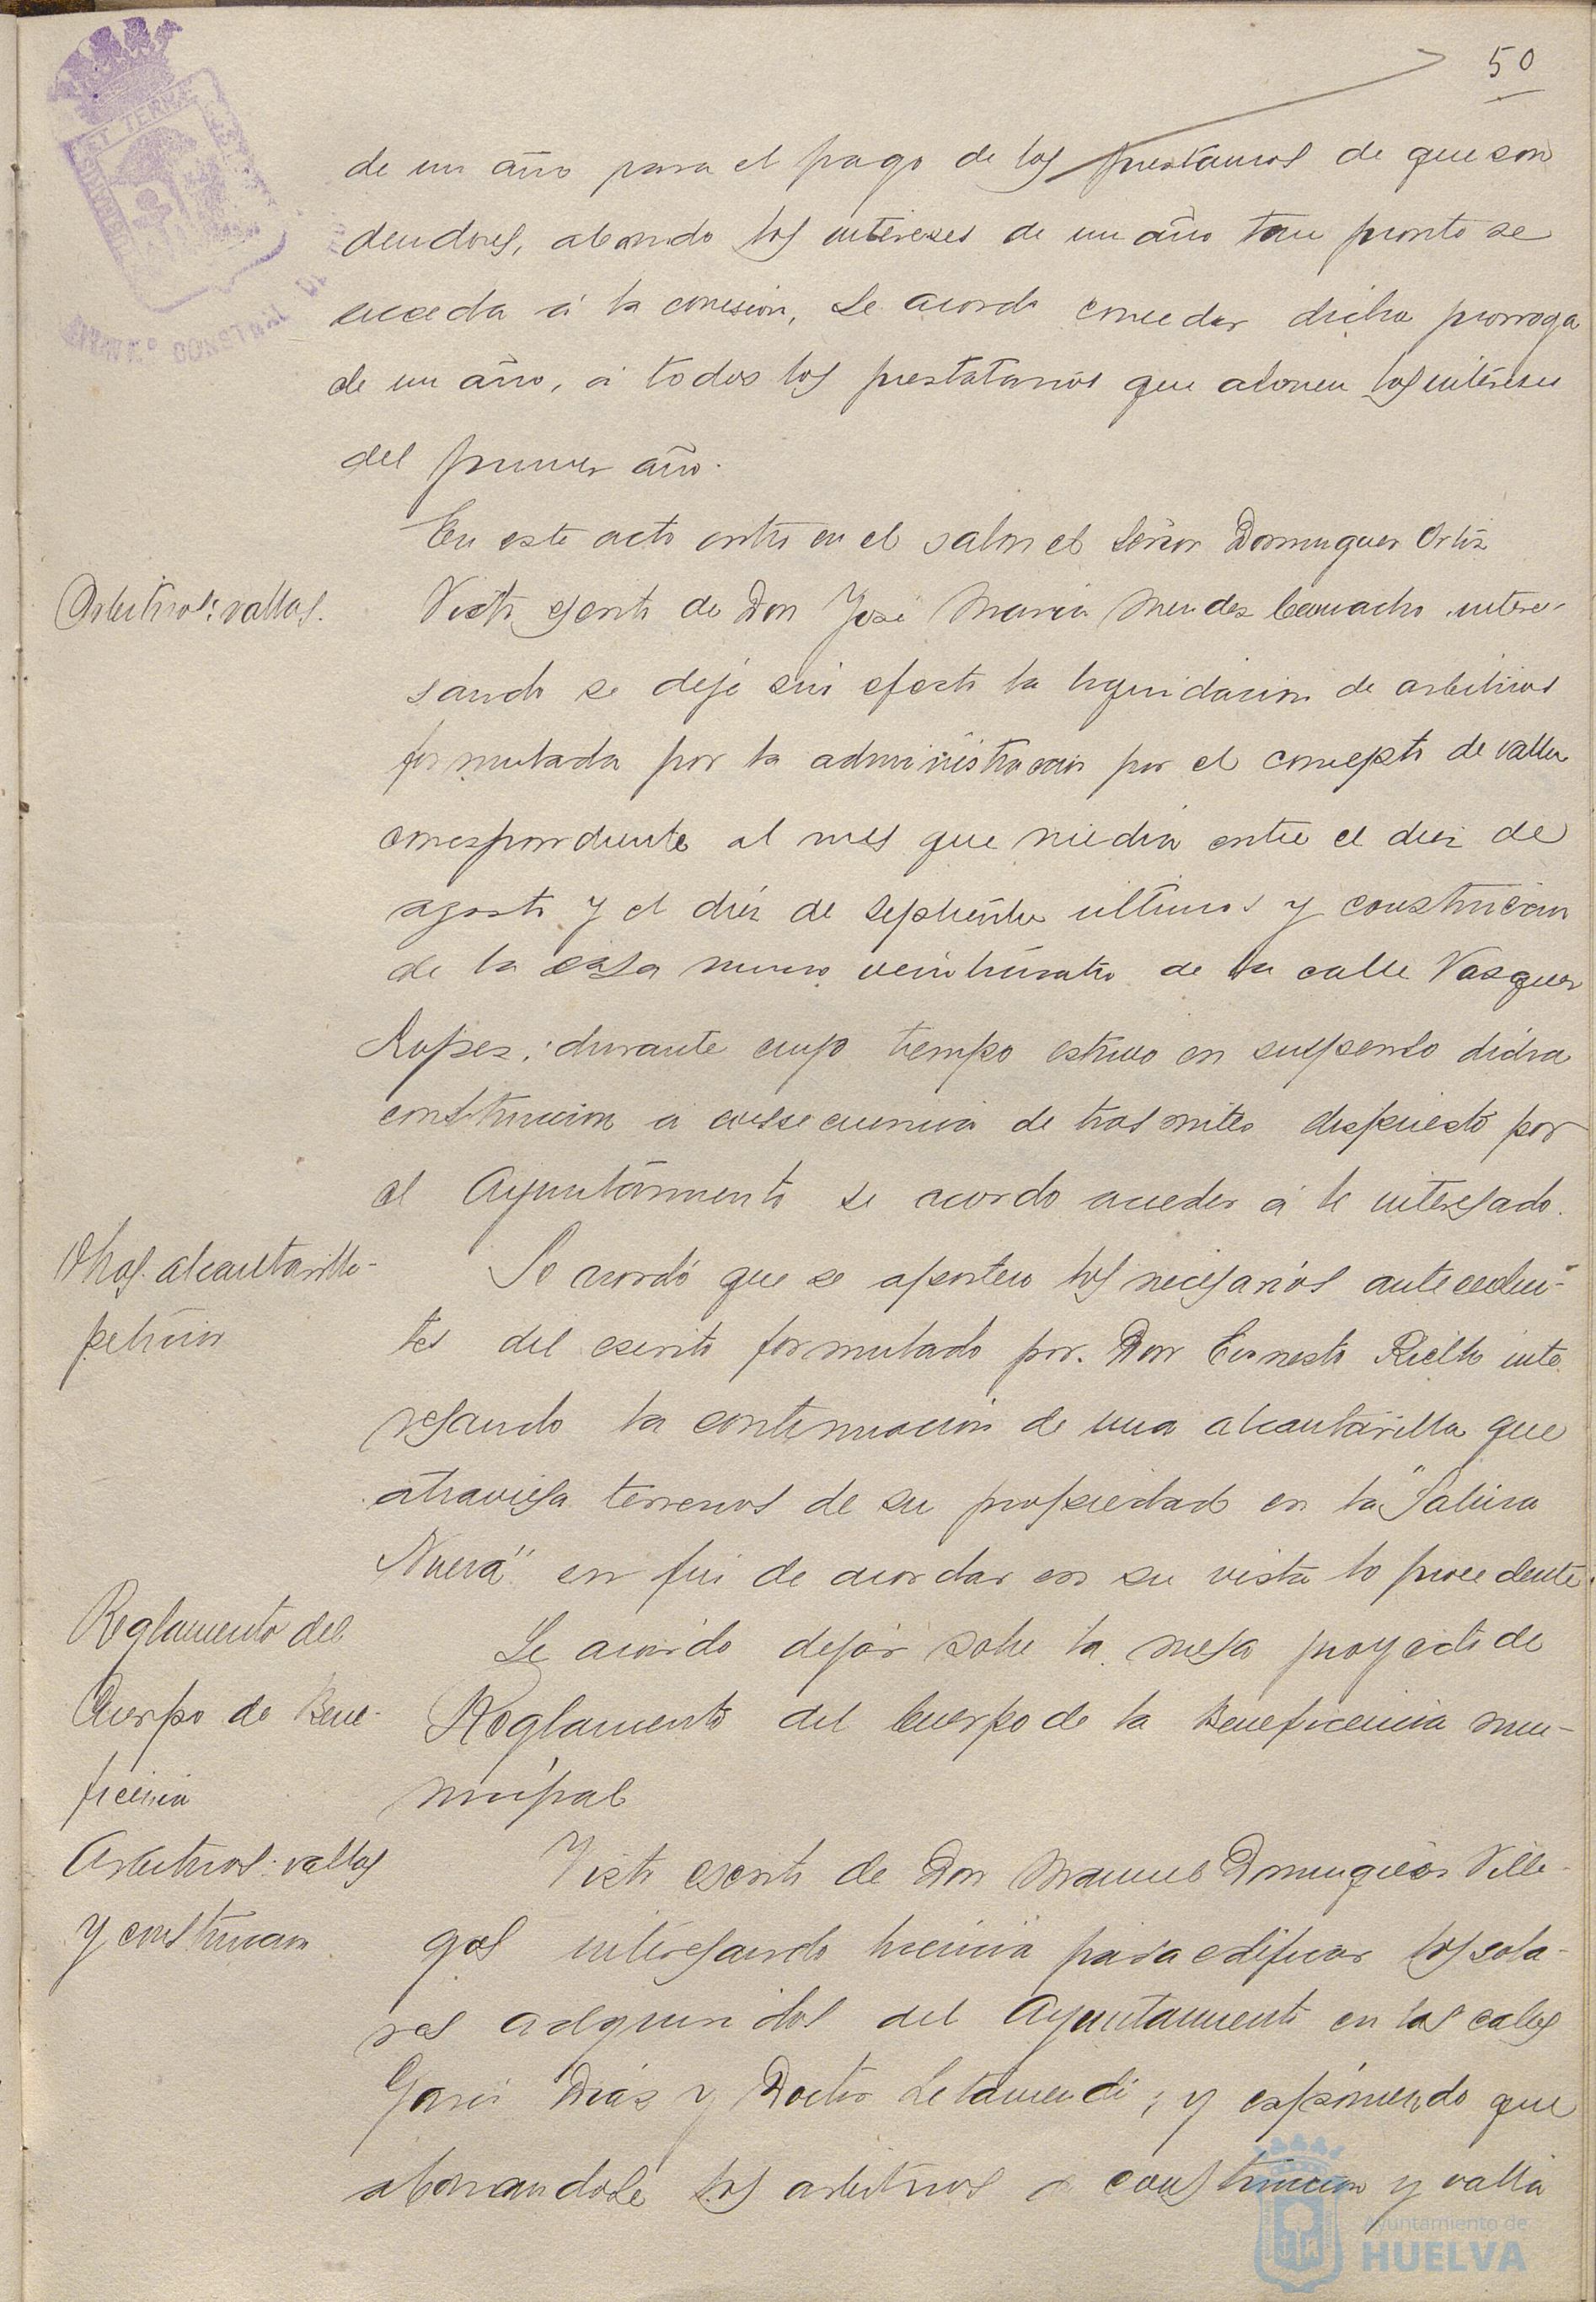 50
de un año para el pago de los prestamos de que son
deudores, abonando los intereses de un año tan pronto se
acceda á la concesion, Se acordó conceder dicha prorroga
de un año, á todos los prestatarios que abonen los intereses
del primer año.
En este acto entró en el salon el Señor Dominguez Ortiz
Arbitrios: vallas.
Visto escrito de Don José Maria Mendez Camacho intere-
sando se deje sin efecto la liquidacion de arbitrios
formulada por la administracion por el concepto de valla
correspondiente al mes que media entre el diez de
agosto y el diez de Septiembre ultimos y construcion
de la casa numero veinticuatro de la calle Vazquez
Lopez; durante cuyo tiempo estuvo en suspenso dicha
construccion a consecuencia de tramites dispuesto por
el Ayuntamiento se acordo acceder á lo interesado.
Obras. alcantarilla-
peticion
Se acordó que se aporten los necesarios anteceden-
tes del escrito formulado por Don Ernesto Rielto inte
resando la continuacion de una alcantarilla que
atraviesa terrenos de su propiedad en la "Salina
Nueva" en fin de acordar en su vista lo procedente.
Reglamento del
Cuerpo de Bene-
ficencia
Se acordó dejar sobre la mesa proyecto de
Reglamento del Cuerpo de la Beneficencia mu-
nicipal
Arbitrios: vallas
y construccion
Visto escrito de Don Manuel Dominguez Ville-
gas interesando licencia para edificar los sola-
res adquiridos del Ayuntamiento en las calles
Garci Diaz y Doctor Letamendi; y exponiendo que
abonandose los arbitrios construccion y valla
Ayuntamiento de
HUELVA